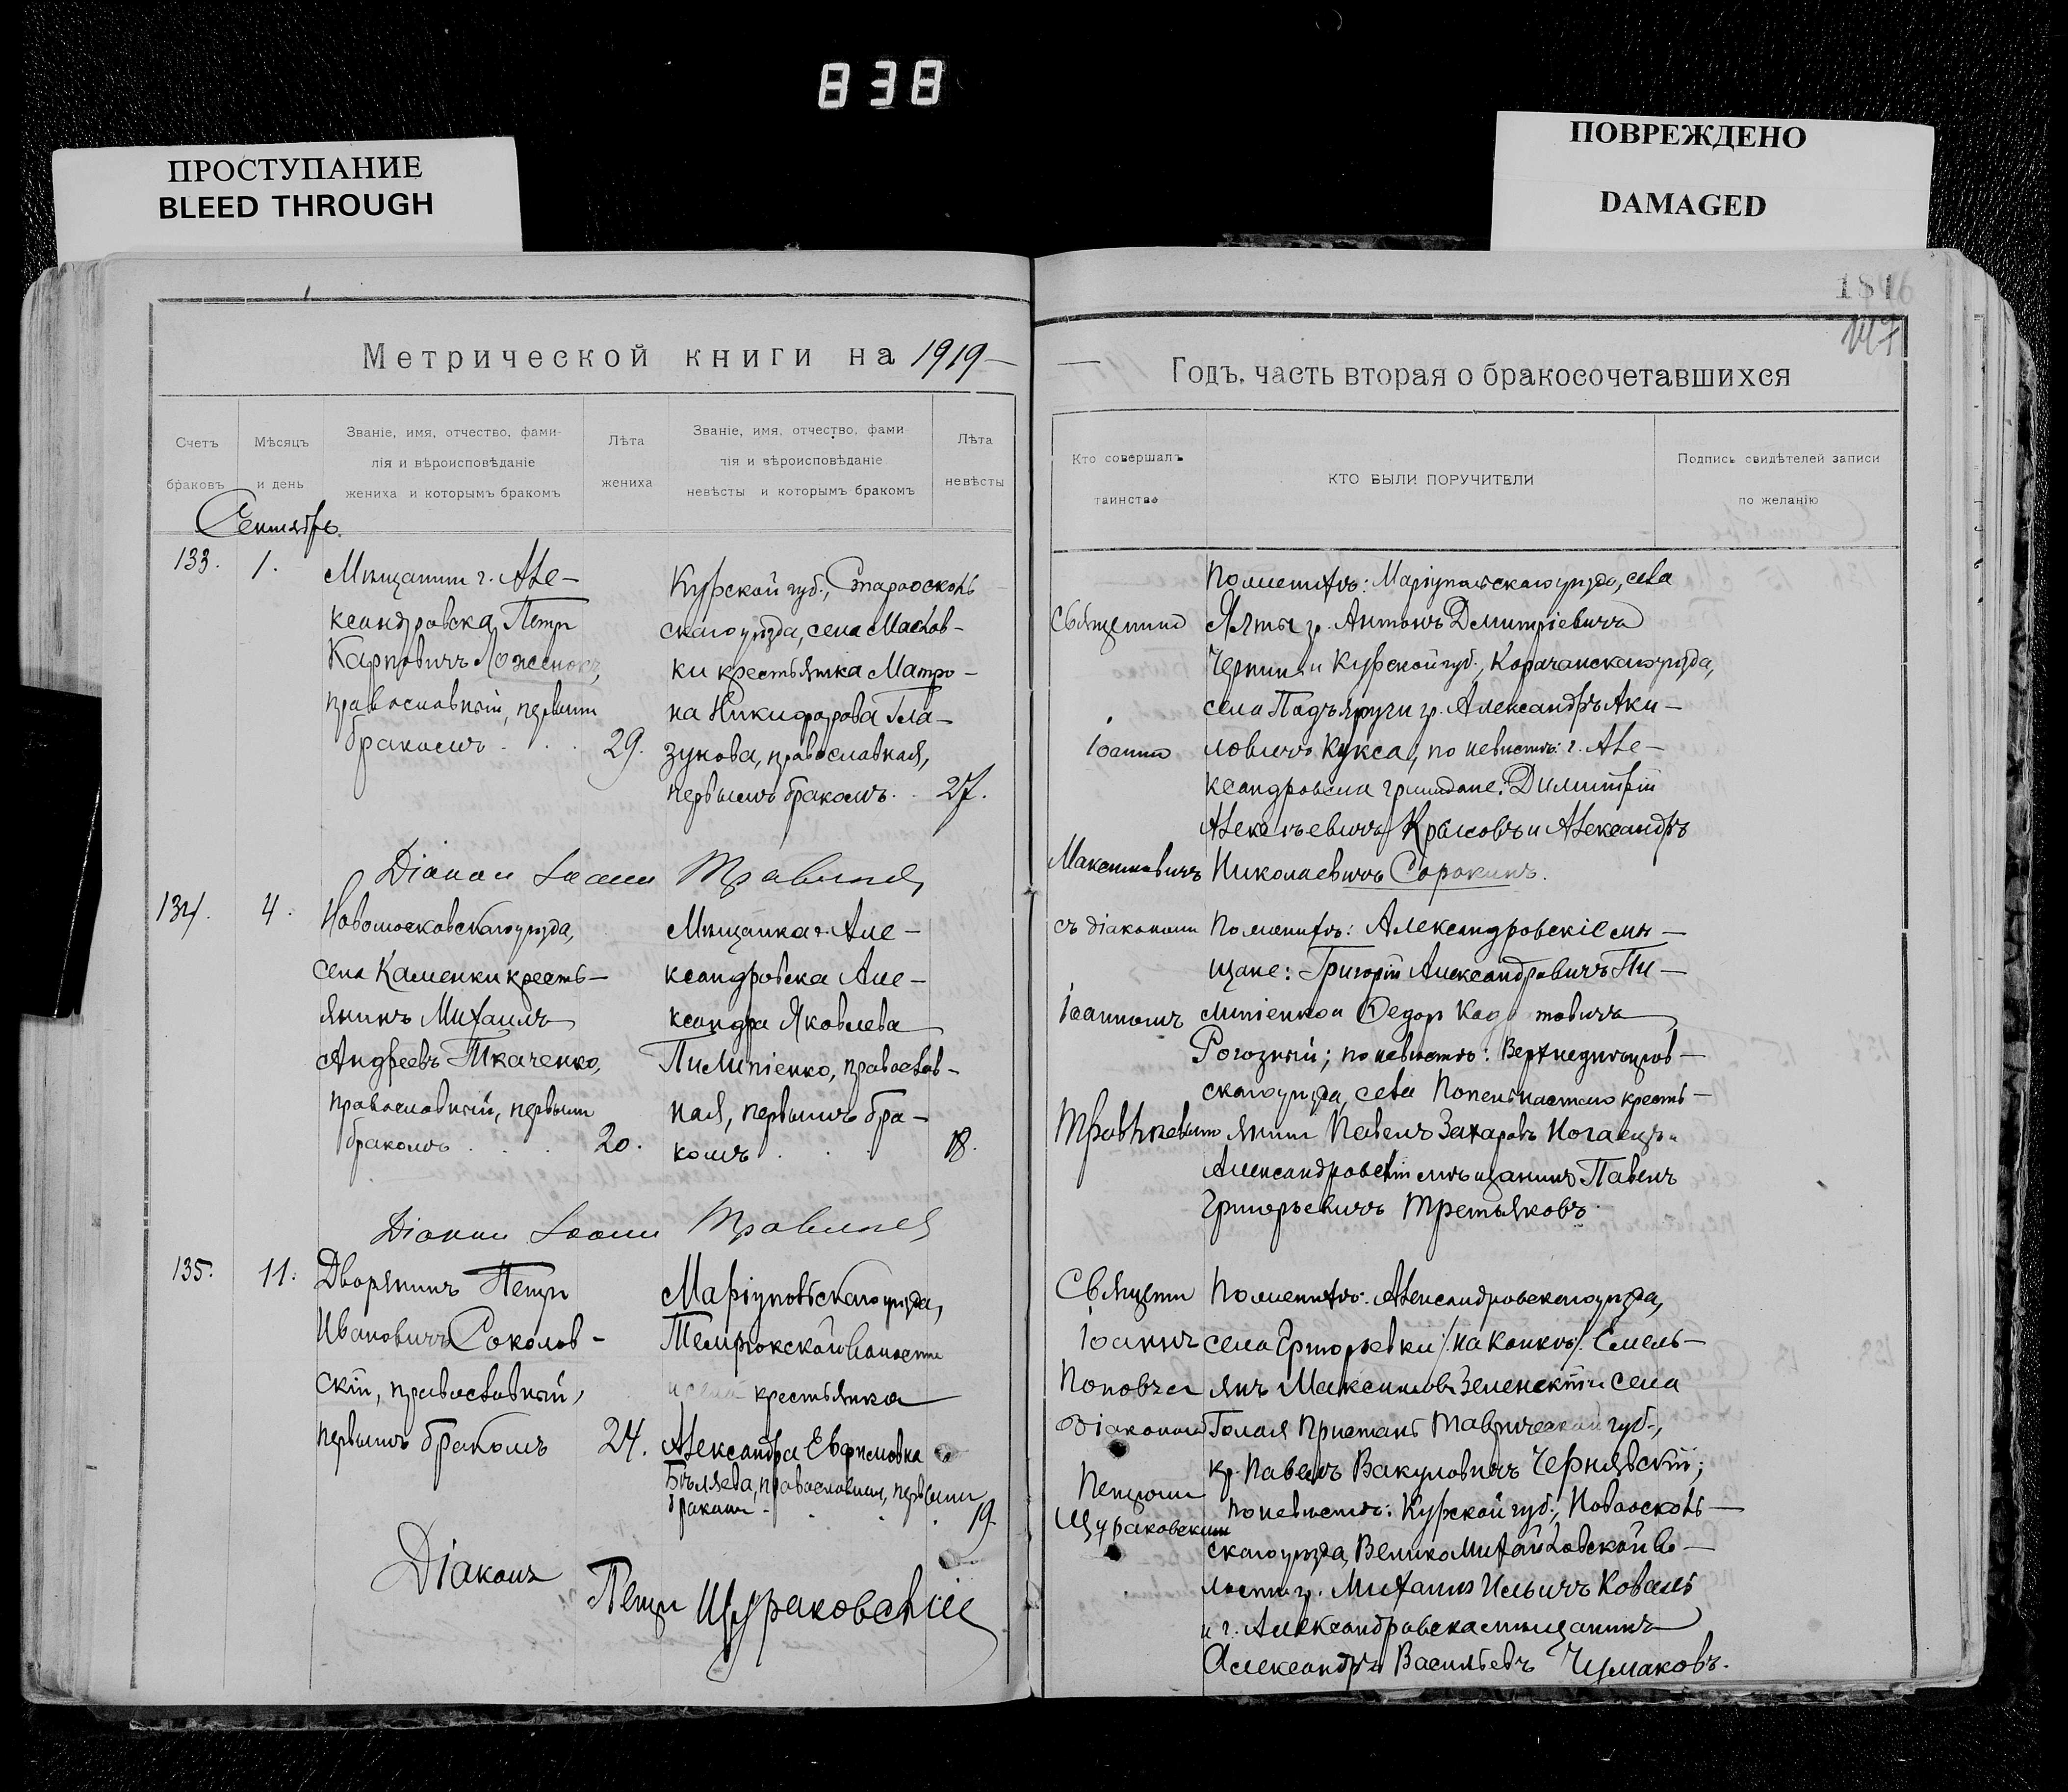 838
ПРОСТУПАНИЕ
BLEED THROUGH
ПОВРЕЖДЕНО
DAMAGED
181
Метрической книги на 1919
Годъ, часть вторая о бракосочетавшихся
Счетъ браковъ
Мѣсяцъ и день
Званіе, имя, отчество, фами-
лія и вѣроисповѣданіе
жениха и которымъ бракомъ
Лѣта жениха
Званіе, имя, отчество, фами
лія и вѣроисповѣданіе
невѣсты и которымъ бракомъ
Лѣта невѣсты
Кто совершалъ таинство
КТО БЫЛИ ПОРУЧИТЕЛИ
Подпись свидѣтелей записи
по желанію
Сентябрь.
133. 1.
Мѣщанинъ г. Але-
ксандровска Петръ
Карповичъ
православный, первымъ
бракомъ 29.
Курской губ., Староосколь
скаго уѣзда, села Маслов-
ки крестьянка Матро-
на Никифорова Гла-
зунова, православная,
первымъ бракомъ 27.
Священникъ
Іоаннъ
Максимовичъ
По женихѣ: Маріупольскаго уѣзда, села
Ялты гр. Антонъ Димитріевичъ
и Курской губ., Корочанскаго уѣзда,
села Подъяруги гр. Александръ Аки-
мовичъ Кукса, по невѣстѣ: г. Але-
ксандровска граждане: Димитрій
Алексѣевичъ и Александръ
Николаевичъ Сорокинъ.
Діаконъ Іоаннъ
134. 4.
Новомосковскаго уѣзда,
села Каменки кресть-
янинъ Михаилъ
Андреевъ Ткаченко,
православный, первымъ
бракомъ 20.
Мѣщанка г. Але-
ксандровска Але-
ксандра Яковлева
Пилипіенко, православ-
ная, первымъ бра-
комъ 18.
съ діакономъ
Іоанномъ
По женихѣ: Александровскіе мѣ-
щане: Григорій Александровичъ Пи-
липіенко и Федоръ
Рогозный; по невѣстѣ: Верхнеднѣпров-
скаго уѣзда, села кресть-
янинъ Павелъ Захаровъ Ногаецъ и
Александровскій мѣщанинъ Павелъ
Григорьевичъ Третьяковъ.
Діаконъ Іоаннъ
135. 11.
Дворянинъ Петръ
Ивановичъ Соколов-
скій, православный,
первымъ бракомъ 24.
Маріупольскаго уѣзда,
Темрюкской волости
крестьянка
Александра Евфимовна
Бѣляева, православная, первымъ
бракомъ 19.
Священ
Іоаннъ
Поповъ съ
Діакономъ
Петромъ
Щураковскимъ
По женихѣ: Александровскаго уѣзда,
села Григорьевки /на Конкѣ/ Емель-
янъ Максимовъ Зеленскій и села
Голая Пристань Таврической губ.,
кр. Павелъ Вакуловичъ Чернявскій;
по невѣстѣ: Курской губ., Новоосколь-
скаго уѣзда, Велико Михайловской во-
лости гр. Михаилъ Ильичъ Коваль
и г. Александровска мѣщанинъ
Александръ Васильевъ Чумаковъ.
Діаконъ
Петръ Щураковскій